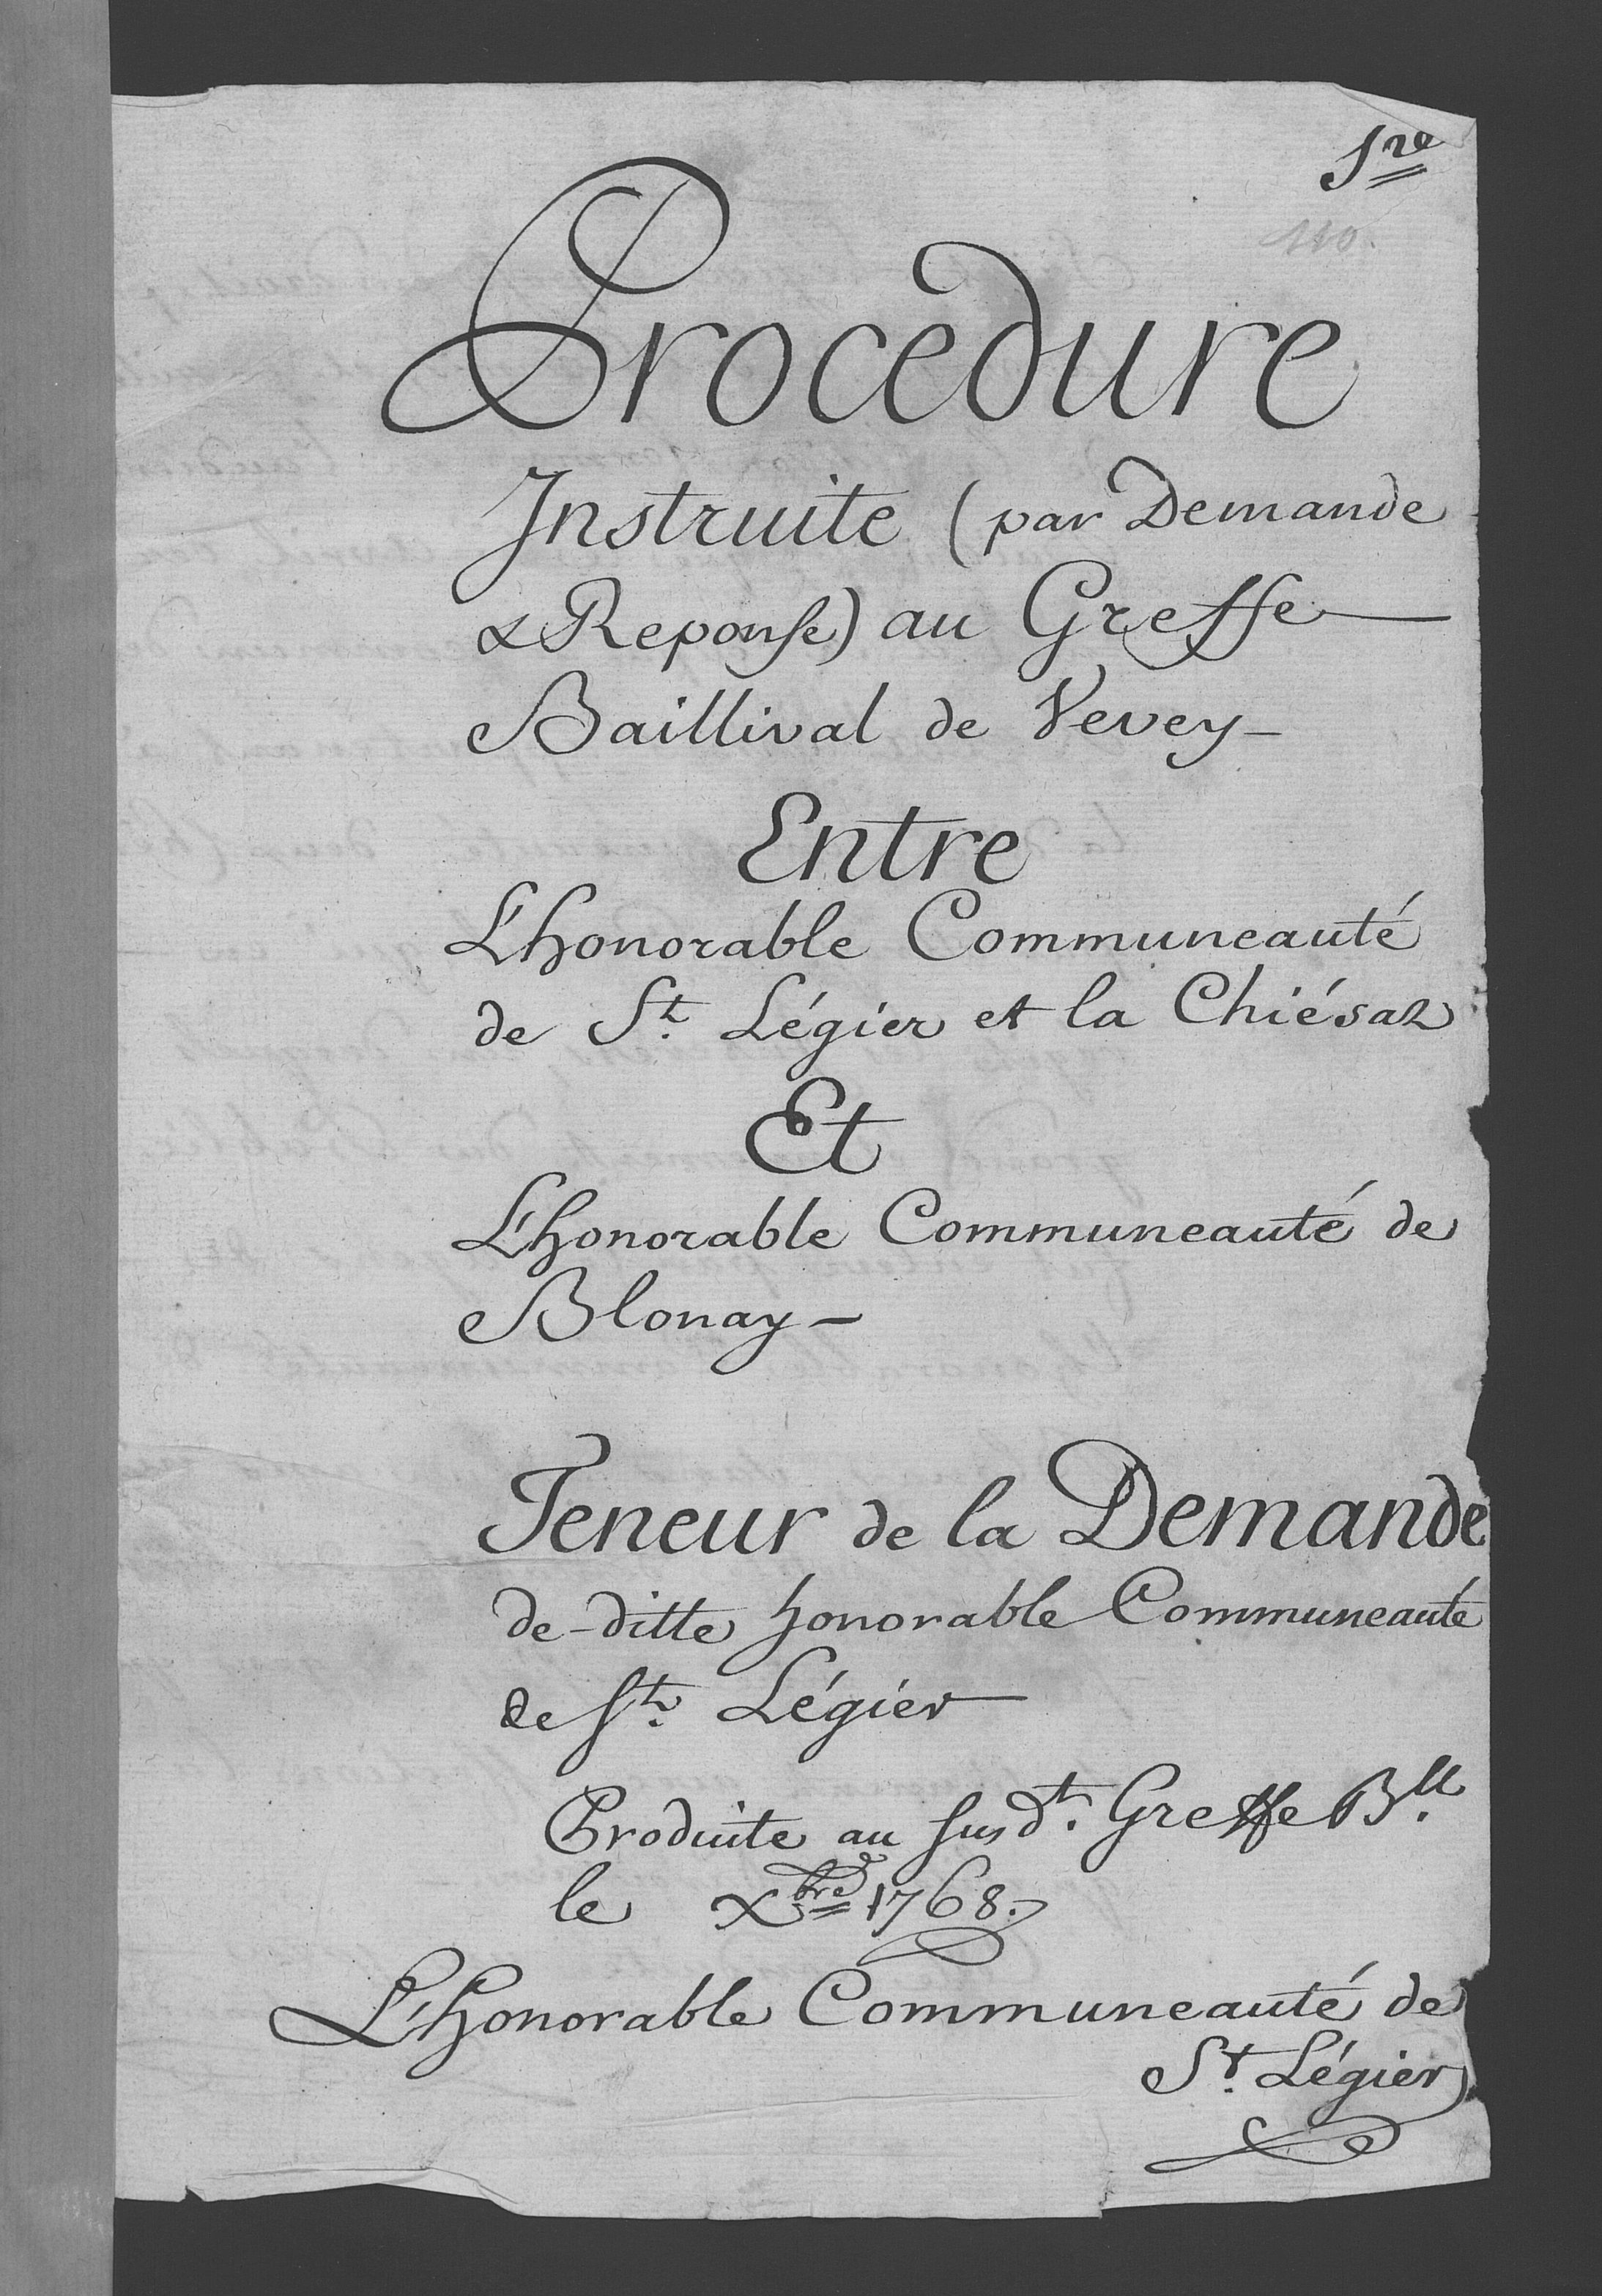 1re
110.
Procedure
Instruite (par Demande
& Reponse) au Greffe
Baillival de Vevey
Entre
L'honorable Communeauté
de St. Légier et la Chiésaz
Et
L'honorable Communeauté de
Blonay
Teneur de la Demande
de-ditte honorable Communeauté
de St. Légier
Produite au susdt. Greffe Bll.
le Xbre 1768.
L'honorable Communeauté de
St. Légier